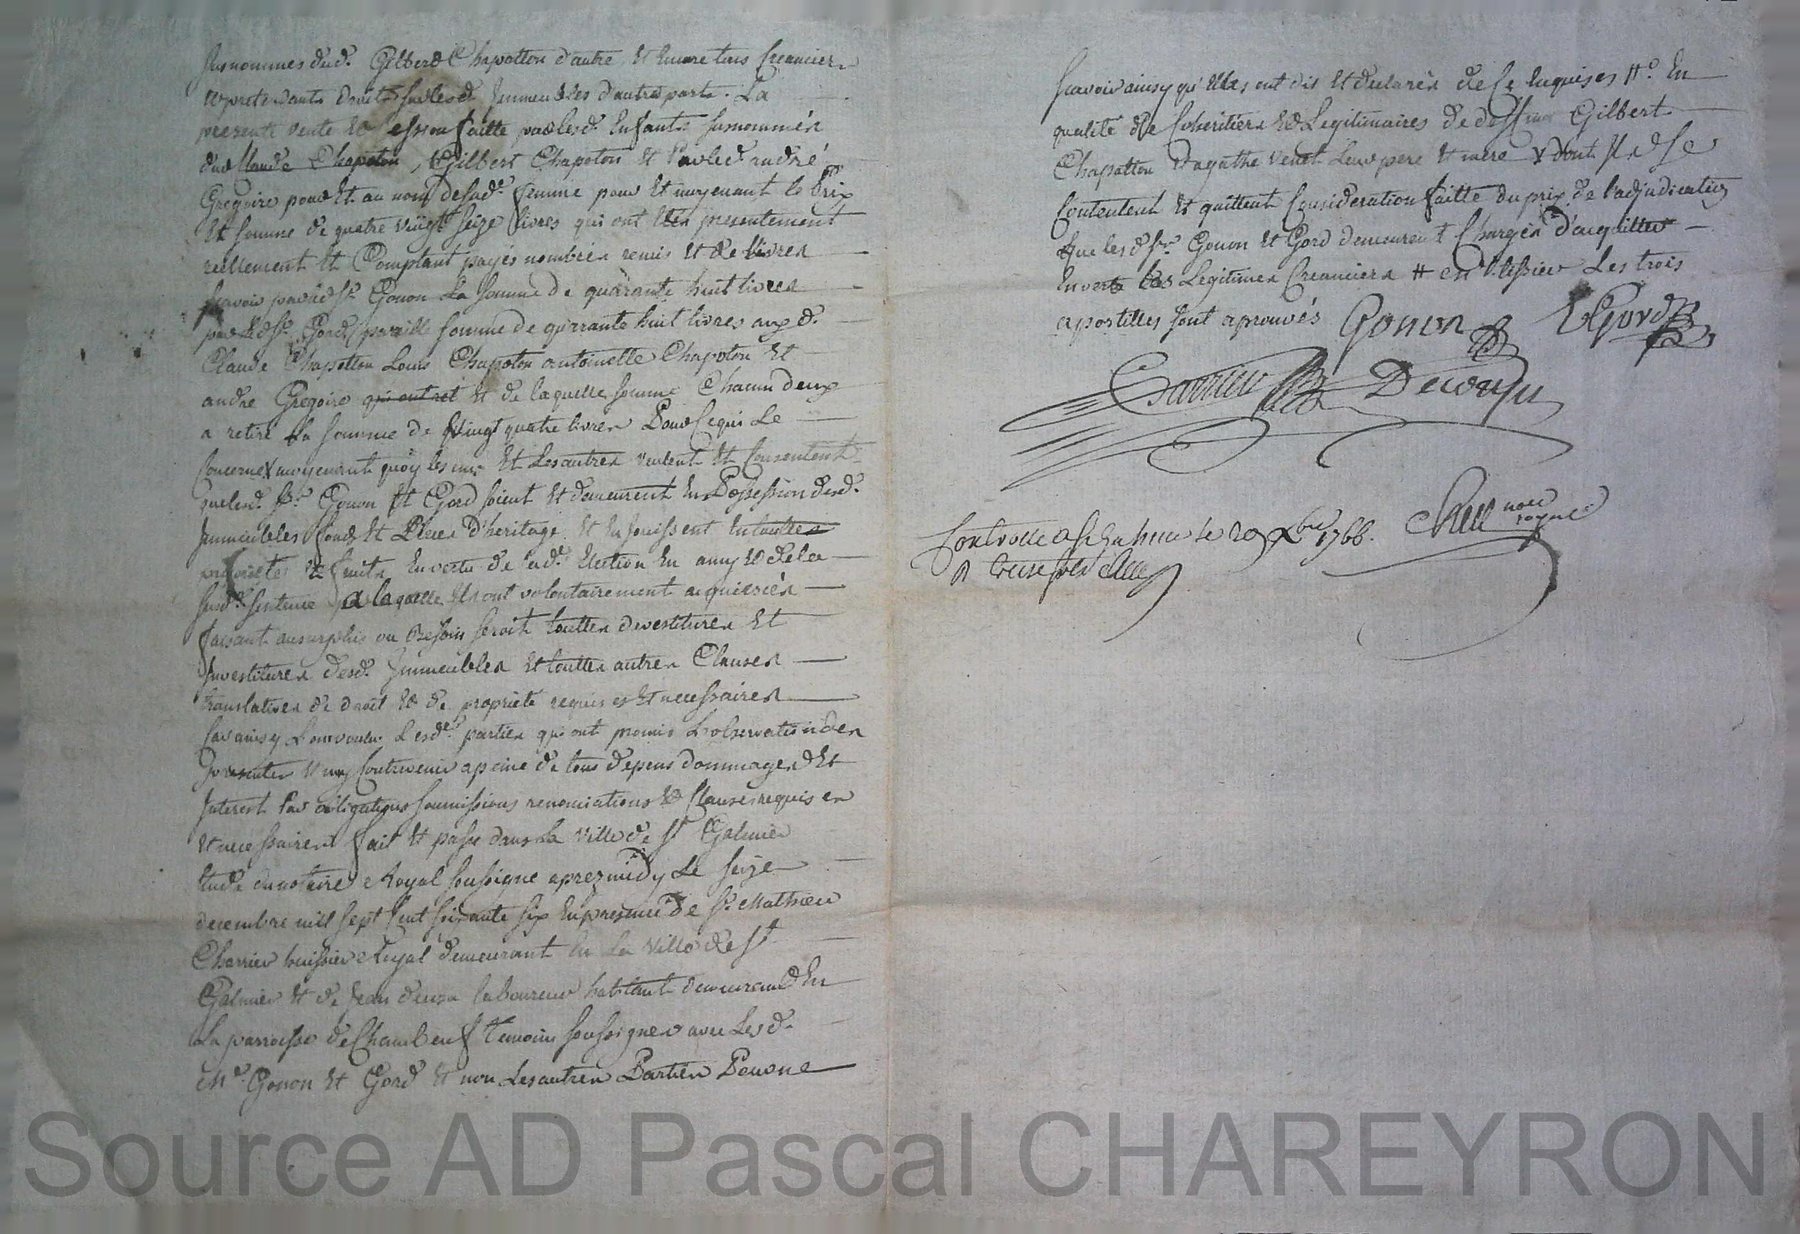 susnommes dud. Gilbert Chapotton d'autre, Et Encore tous Creanciers
Et pretendants droits sur lesd. Immeubles d'autre part. La
presente vente Et Cession faitte par lesd. Enfants susnommés
dud. Claude Chapoton, Gilbert Chapoton Et par led. andré
Gregoire pour Et au nom de sad.e femme pour Et moyenant le Prix
Et somme de quatre vingt seize livres qui ont Eté presentement
reellement Et Comptant payés nombrés remis Et delivrés
scavoir par led. Sr. Gonon La somme de quarante huit livres
par led. Sr. Gord pareille somme de quarrante huit livres auxd.
Claude Chapotton Louis Chapoton antoinette Chapoton Et
andré Gregoire qui ont ret Et de laquelle somme Chacun deux
a retiré La somme de Vingt quatre livres Pour Ce qui Le
Concerne moyenant quoy les uns Et Les autres veulent Et Consentent
que lesd. Srs. Gonon Et Gord soient Et demeurent En Possession desd.
Immeubles fonds Et Place d'heritage Et En jouissent En touttes
proprietés Et fruits En vertu de lad. Election En amy Et de la
susd. sentence a laquelle Ils ont volontairement acquiescés
faisant au surplus ou Besoin seroit touttes devestitures Et
Investitures desd. Immeubles Et touttes autres Clauses
translatives de droit Et de propriété requises Et necessaires
Car ainsy L'ont voulu Lesd.es parties qui ont promis L'observation des
presentes Et n'y Contrevenir a peine de tous depens dommages Et
Interest Par obligations soumissions renonciations Et Clauses requises
Et necessaires fait Et passé dans La ville de St Galmier
Etude du notaire Royal soussigné aprez midy Le seize
decembre mill sept Cent soixante six En presence de Sr. Mathieu
Charrier huissier Royal demeurant En La ville de St
Galmier Et de Jean laboureur habitant demeurant En
La parroisse de Chambeuf temoins soussignes avec Lesd.
Gonon Et Gord Et non Les autres Parties Pour ne
scavoir ainsy qu'Elles ont dit Et declarés de Ce Enquises En
qualité de Coheritiers Et Legitimaires de Gilbert
Chapotton Et agathe Venet Leur pere Et mere dont Ils se
Contentent Et quittent Consideration faitte du prix de l'adjudication
que lesd. Srs. Gonon Et Gord demeurent Chargés d'acquitter
Envers Les Legitimes Creanciers Les trois
apostilles sont aprouvés Gonon Gord
Charrier
not.re royal
Controllé a St Galmier le 29 Xbre 1766.
R treize sols
Source AD Pascal CHAREYRON